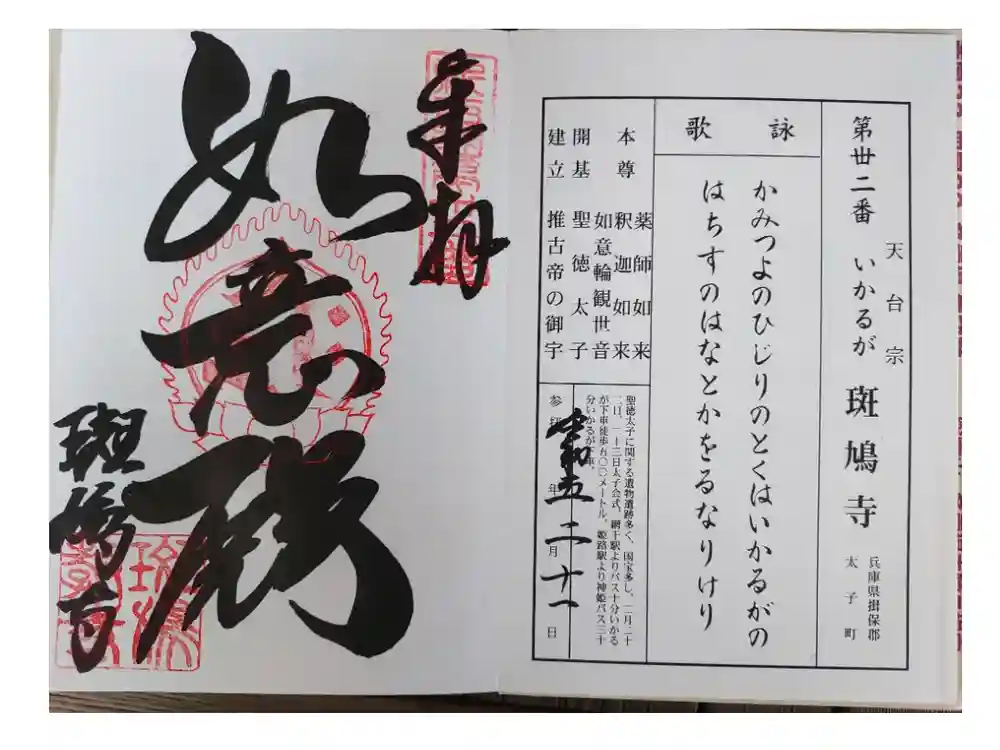 天台宗
第丗二番 いかるが 斑鳩寺
兵庫県揖保郡
太子町
詠歌
かみつよのひじりのとくはいかるがの
はちすのはなとかをるなりけり
本尊 薬師如来
釈迦如来
如意輪観世音
開基 聖徳太子
建立 推古帝の御宇
聖徳太子に関する遺物遺跡多く、国宝多し、二月二十
二日、二十三日太子会式、網干駅よりバス十分いかる
が下車徒歩五〇〇メートル。姫路駅より神姫バス三十
分いかるが下車。
参拝 令和五年二月十一日
奉拝
如意殿
斑鳩寺